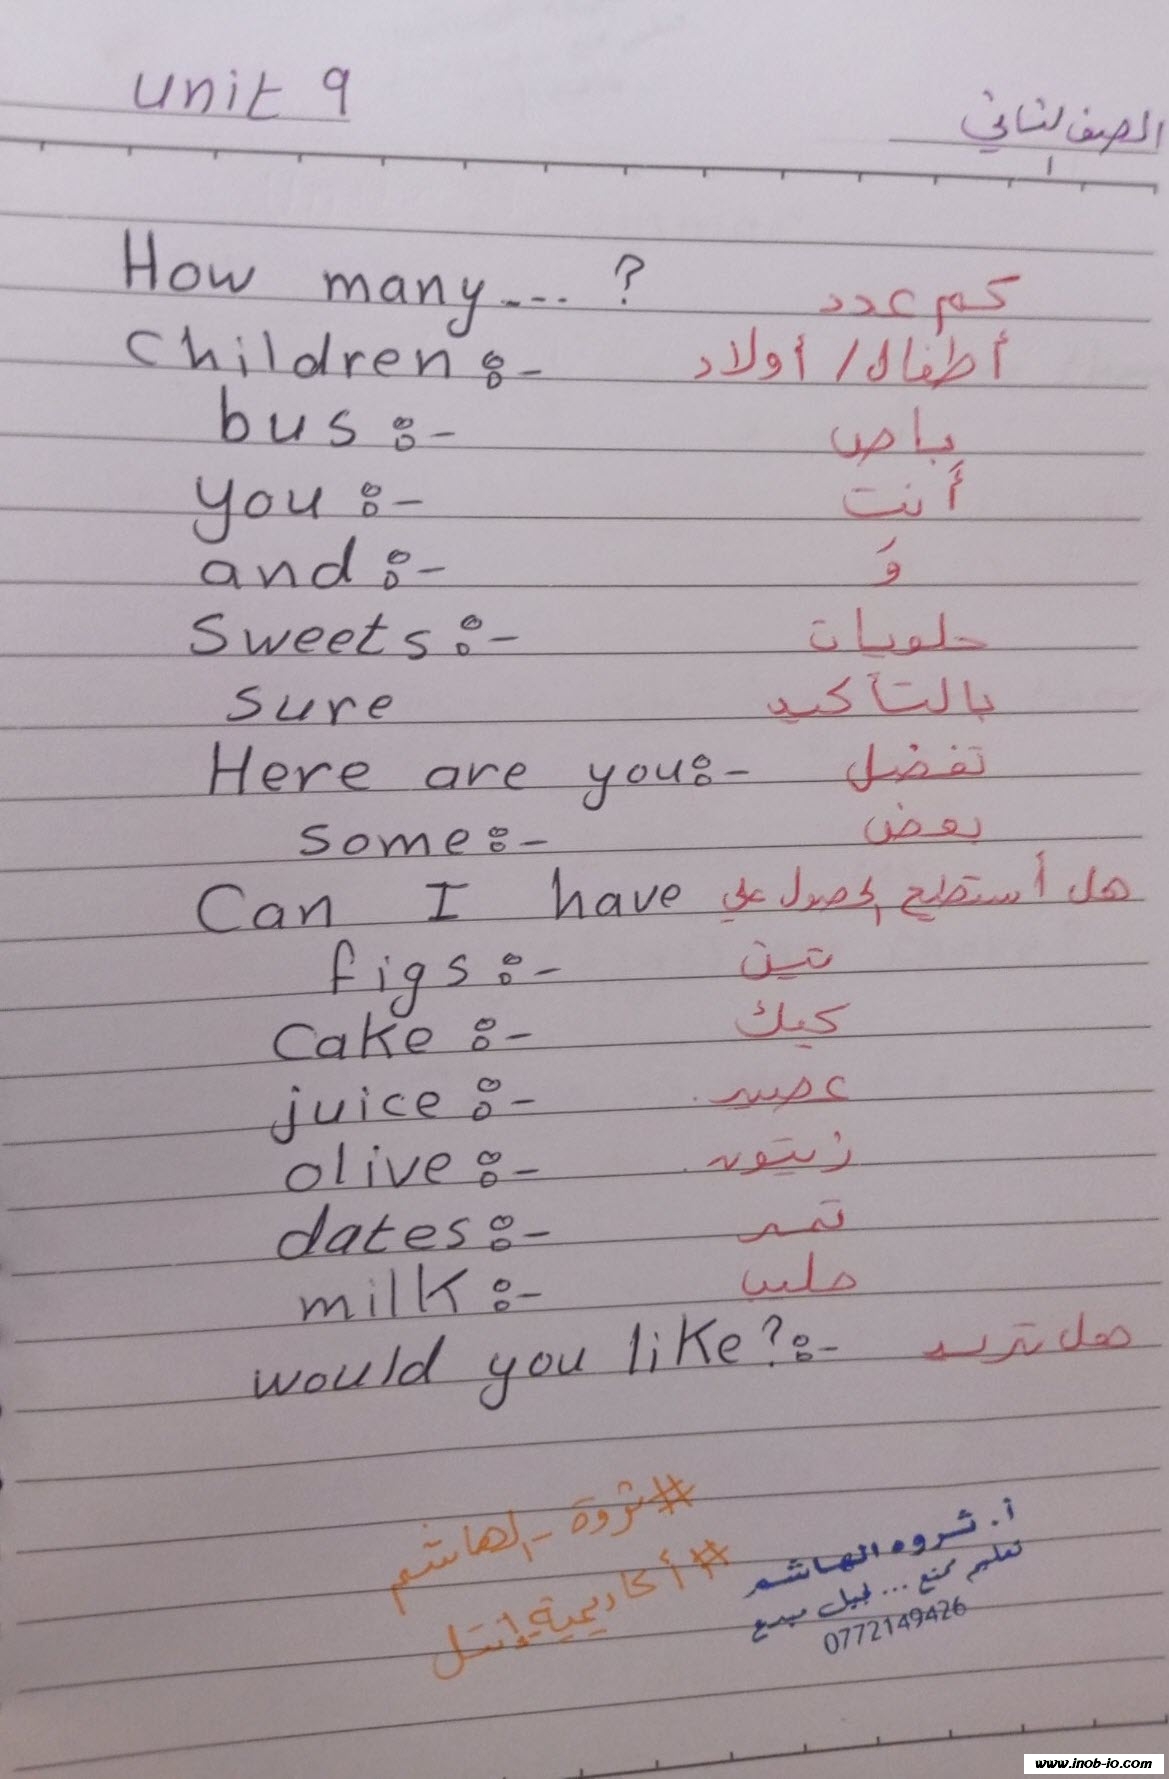 unit 9 الصف الثاني
How many.... ? كم عدد
children :- أطفال / أولاد
bus :- باص
you :- أنت
and :- وَ
Sweets :- حلويات
sure بالتأكيد
Here are you:- تفضل
some:- بعض
Can I have هل أستطيع الحصول على
figs :- تين
Cake :- كيك
juice :- عصير
olive :- زيتون
dates :- تمر
milk :- حليب
would you like? :- هل تريد
#ثروة_الهاشم
#أكاديمية_إنتل
أ. ثروه الهاشم
تعليم ممتع ... لجيل مبدع
0772149426
www.inob-jo.com